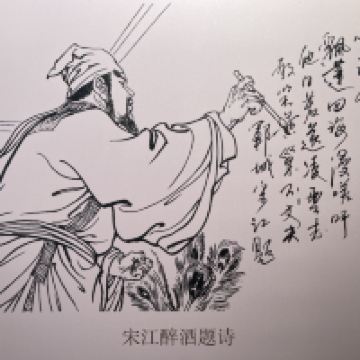 飄蓬四海漫嗟吁
他日若遂凌雲志
敢笑黄巢不丈夫
鄆城宋江題
宋江醉酒题诗